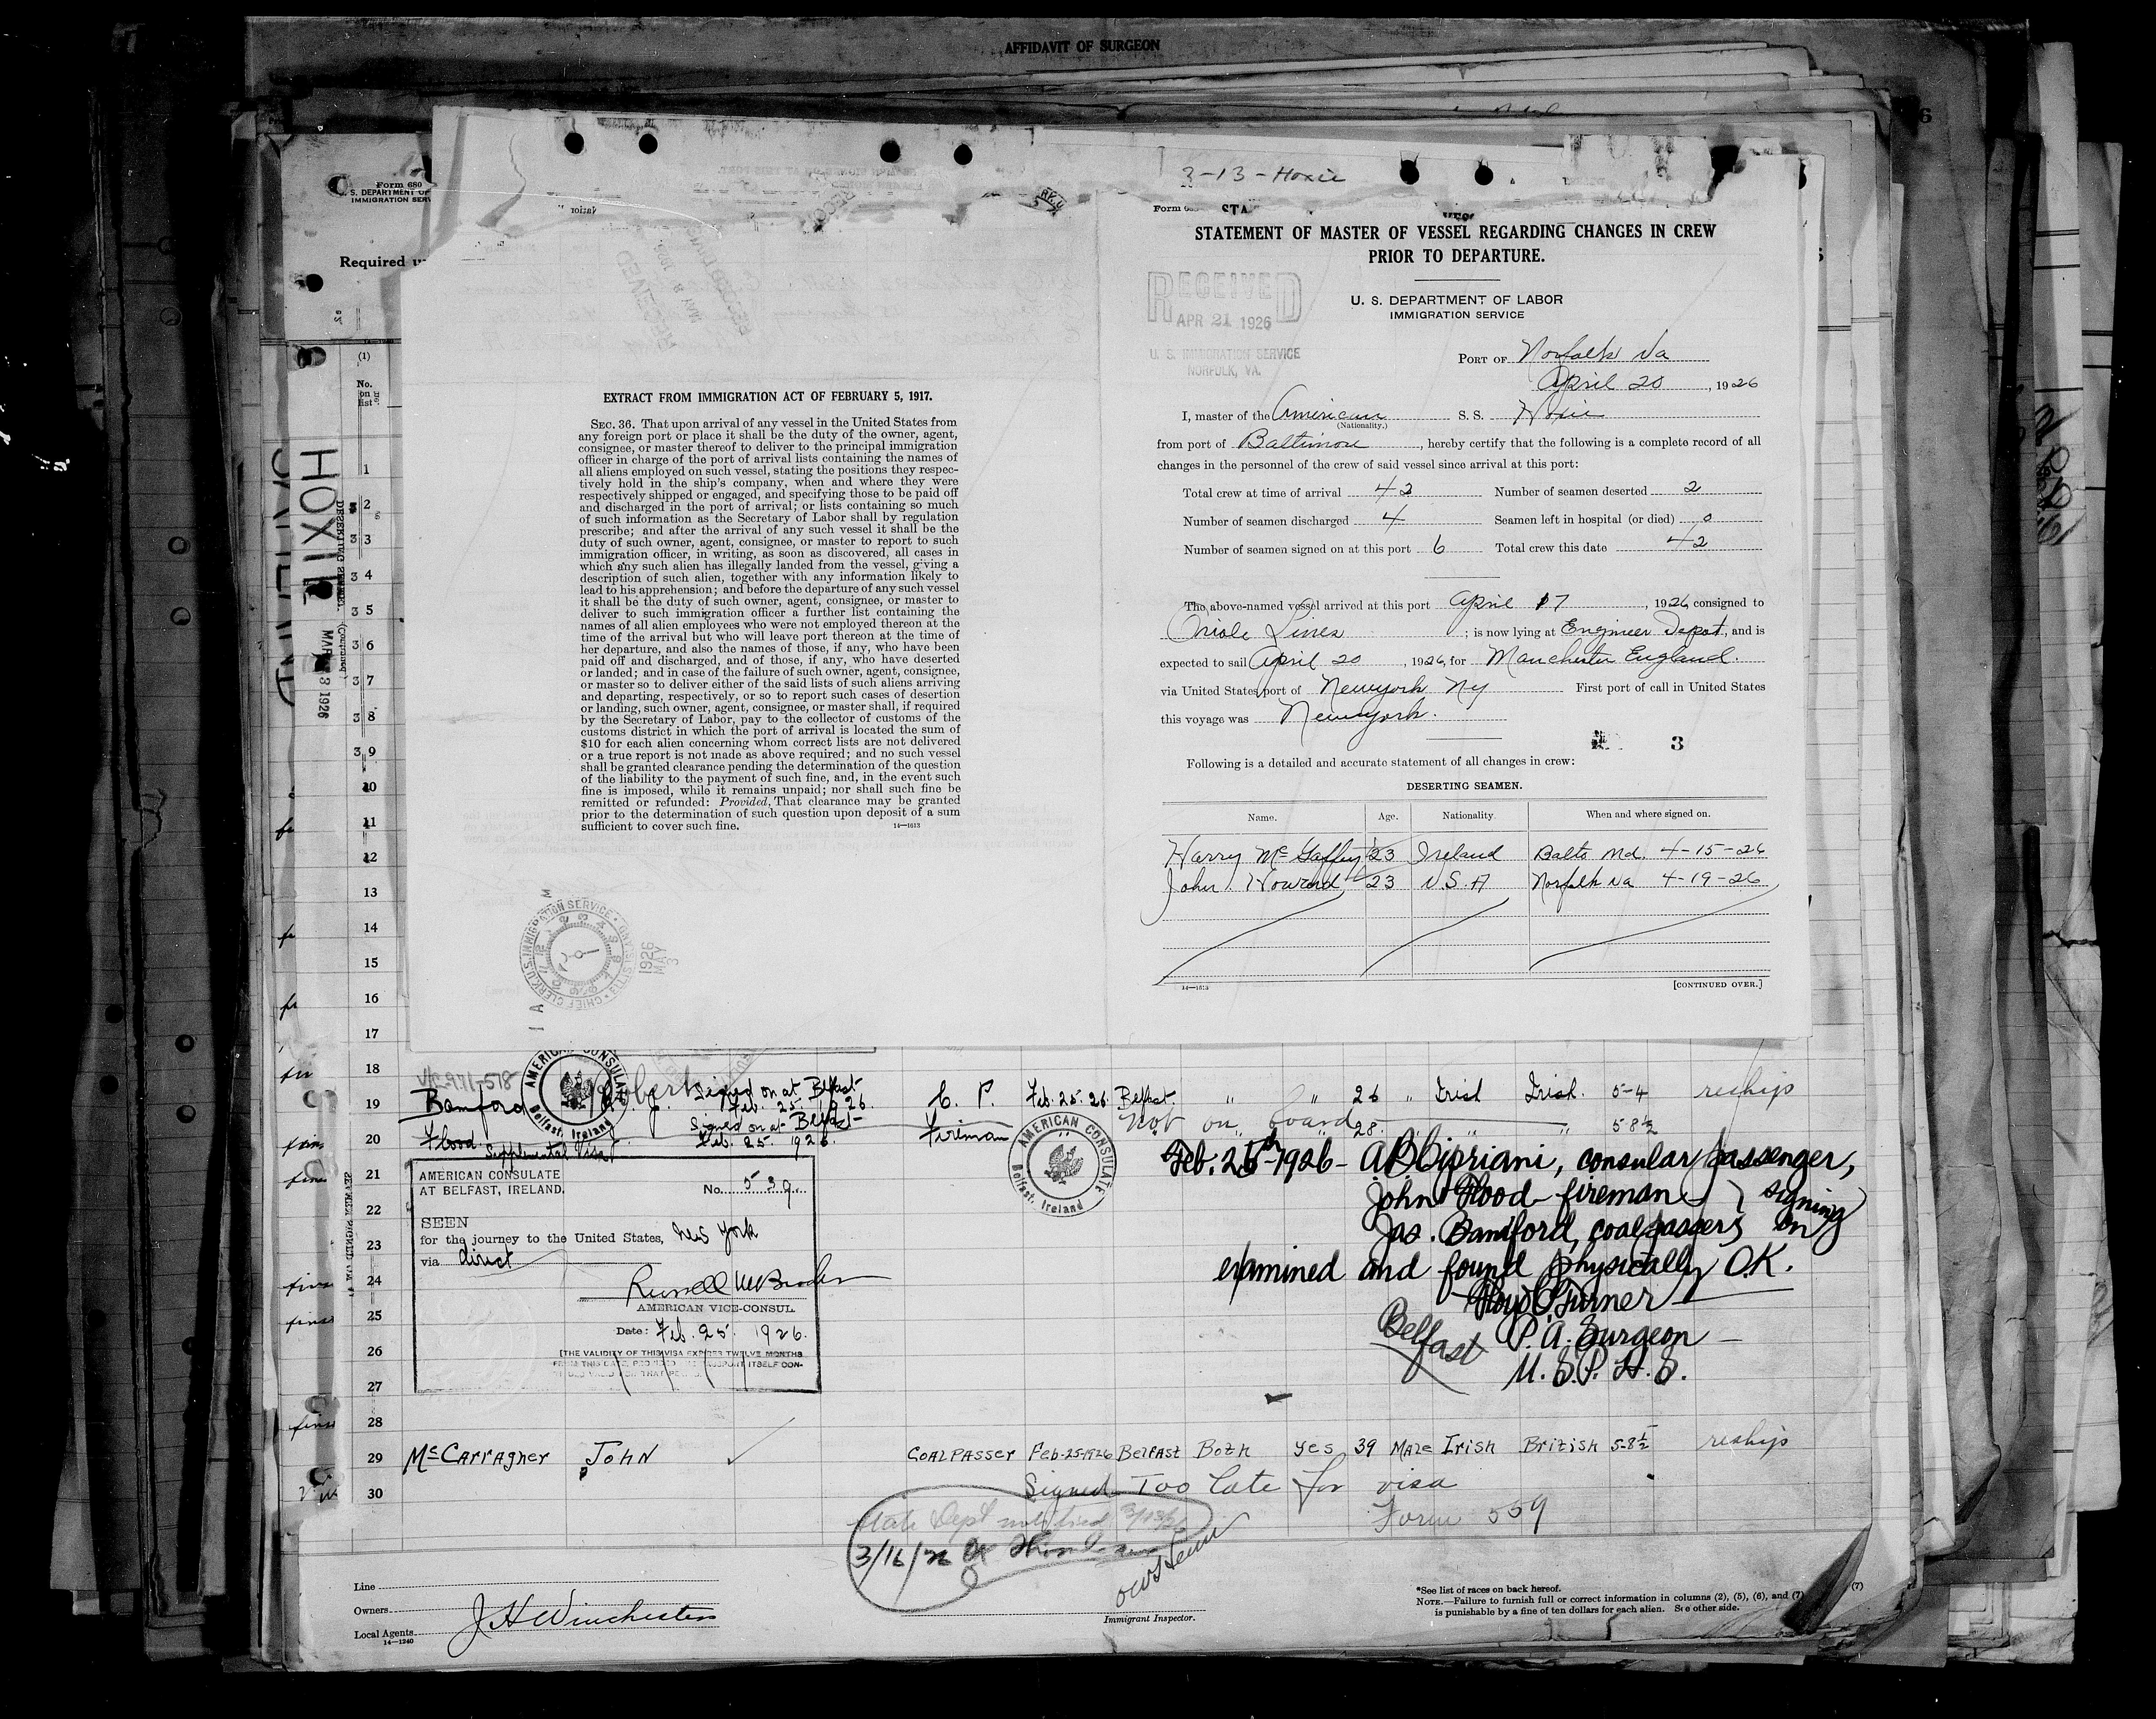 AFFIDAVIT OF SURGEON
3-13-Hoxie
Form 680
U. S. DEPARTMENT OF
IMMIGRATION SERV
Required u
(1)
No. on list
HOXIE
MAR 1926
1
2
3
4
5
6
7
8
9
10
11
12
13
14
15
16
17
18
19
20
21
22
23
24
25
26
27
28
29
30
RECEIVED
MAY 8 1926
EXTRACT FROM IMMIGRATION ACT OF FEBRUARY 5, 1917.
SEC. 36. That upon arrival of any vessel in the United States from
any foreign port or place it shall be the duty of the owner, agent,
consignee, or master thereof to deliver to the principal immigration
officer in charge of the port of arrival lists containing the names of
all aliens employed on such vessel, stating the positions they respec-
tively hold in the ship's company, when and where they were
respectively shipped or engaged, and specifying those to be paid off
and discharged in the port of arrival; or lists containing so much
of such information as the Secretary of Labor shall by regulation
prescribe; and after the arrival of any such vessel it shall be the
duty of such owner, agent, consignee, or master to report to such
immigration officer, in writing, as soon as discovered, all cases in
which any such alien has illegally landed from the vessel, giving a
description of such alien, together with any information likely to
lead to his apprehension; and before the departure of any such vessel
it shall be the duty of such owner, agent, consignee, or master to
deliver to such immigration officer a further list containing the
names of all alien employees who were not employed thereon at the
time of the arrival but who will leave port thereon at the time of
her departure, and also the names of those, if any, who have been
paid off and discharged, and of those, if any, who have deserted
or landed; and in case of the failure of such owner, agent, consignee,
or master so to deliver either of the said lists of such aliens arriving
and departing, respectively, or so to report such cases of desertion
or landing, such owner, agent, consignee, or master shall, if required
by the Secretary of Labor, pay to the collector of customs of the
customs district in which the port of arrival is located the sum of
$10 for each alien concerning whom correct lists are not delivered
or a true report is not made as above required; and no such vessel
shall be granted clearance pending the determination of the question
of the liability to the payment of such fine, and, in the event such
fine is imposed, while it remains unpaid; nor shall such fine be
remitted or refunded: Provided, That clearance may be granted
prior to the determination of such question upon deposit of a sum
sufficient to cover such fine. 14—1613
CHIEF CLERK U.S. IMMIGRATION SERVICE ELLIS ISLAND
1926 MAY 3
STATEMENT OF MASTER OF VESSEL REGARDING CHANGES IN CREW
PRIOR TO DEPARTURE.
U. S. DEPARTMENT OF LABOR
IMMIGRATION SERVICE
RECEIVED
APR 21 1926
U. S. IMMIGRATION SERVICE
NORFOLK, VA.
PORT OF Norfolk Va
April 20, 1926
I, master of the American S. S. Hoxie
(Nationality.)
from port of Baltimore, hereby certify that the following is a complete record of all
changes in the personnel of the crew of said vessel since arrival at this port:
Total crew at time of arrival 42 Number of seamen deserted 2
Number of seamen discharged 4 Seamen left in hospital (or died) 0
Number of seamen signed on at this port 6 Total crew this date 42
The above-named vessel arrived at this port April 17, 1926, consigned to
Oriole Lines; is now lying at Engineer Depot, and is
expected to sail April 20, 1926, for Manchester England.
via United States port of Newyork Ny First port of call in United States
this voyage was Newyork.
3
Following is a detailed and accurate statement of all changes in crew:
DESERTING SEAMEN.
Name. Age. Nationality. When and where signed on.
Harry McGaffey 23 Ireland Balto Md. 4-15-26
John Howard 23 U.S.A Norfolk Va 4-19-26
14—1613 [CONTINUED OVER.]
Bamford Robert Signed on at Belfast Feb. 25. 1926. C. P. Feb. 25. 26. Belfast " " 26 " Irish Irish. 5-4 reship
Flood J. Signed on at Belfast Feb. 25. 1926. Fireman " Not on board 28. " " 5-8½
AMERICAN CONSULATE Belfast, Ireland
AMERICAN CONSULATE Belfast, Ireland
Supplemental Visa
AMERICAN CONSULATE
AT BELFAST, IRELAND. No. 539.
SEEN
for the journey to the United States, New York
via direct
AMERICAN VICE-CONSUL.
Date: Feb. 25. 1926.
[THE VALIDITY OF THIS VISA EXPIRES TWELVE MONTHS
Feb. 25th 1926 - A B Cipriani, consular passenger,
John Flood - fireman } signing
Jas. Bamford, coalpasser } on
examined and found physically O.K.
Turner
Belfast P. A. Surgeon
U. S. P. H. S.
McCarragher John COALPASSER Feb-25-1926 Belfast Both yes 39 Male Irish British 5-8½ reship
Signed Too late for visa
Form 559
State Dept notified 3/13/26
3/16/26
Line
Owners
Local Agents J H Winchester
14—1240
Immigrant Inspector.
*See list of races on back hereof.
NOTE.—Failure to furnish full or correct information in columns (2), (5), (6), and (7)
is punishable by a fine of ten dollars for each alien. See other side.